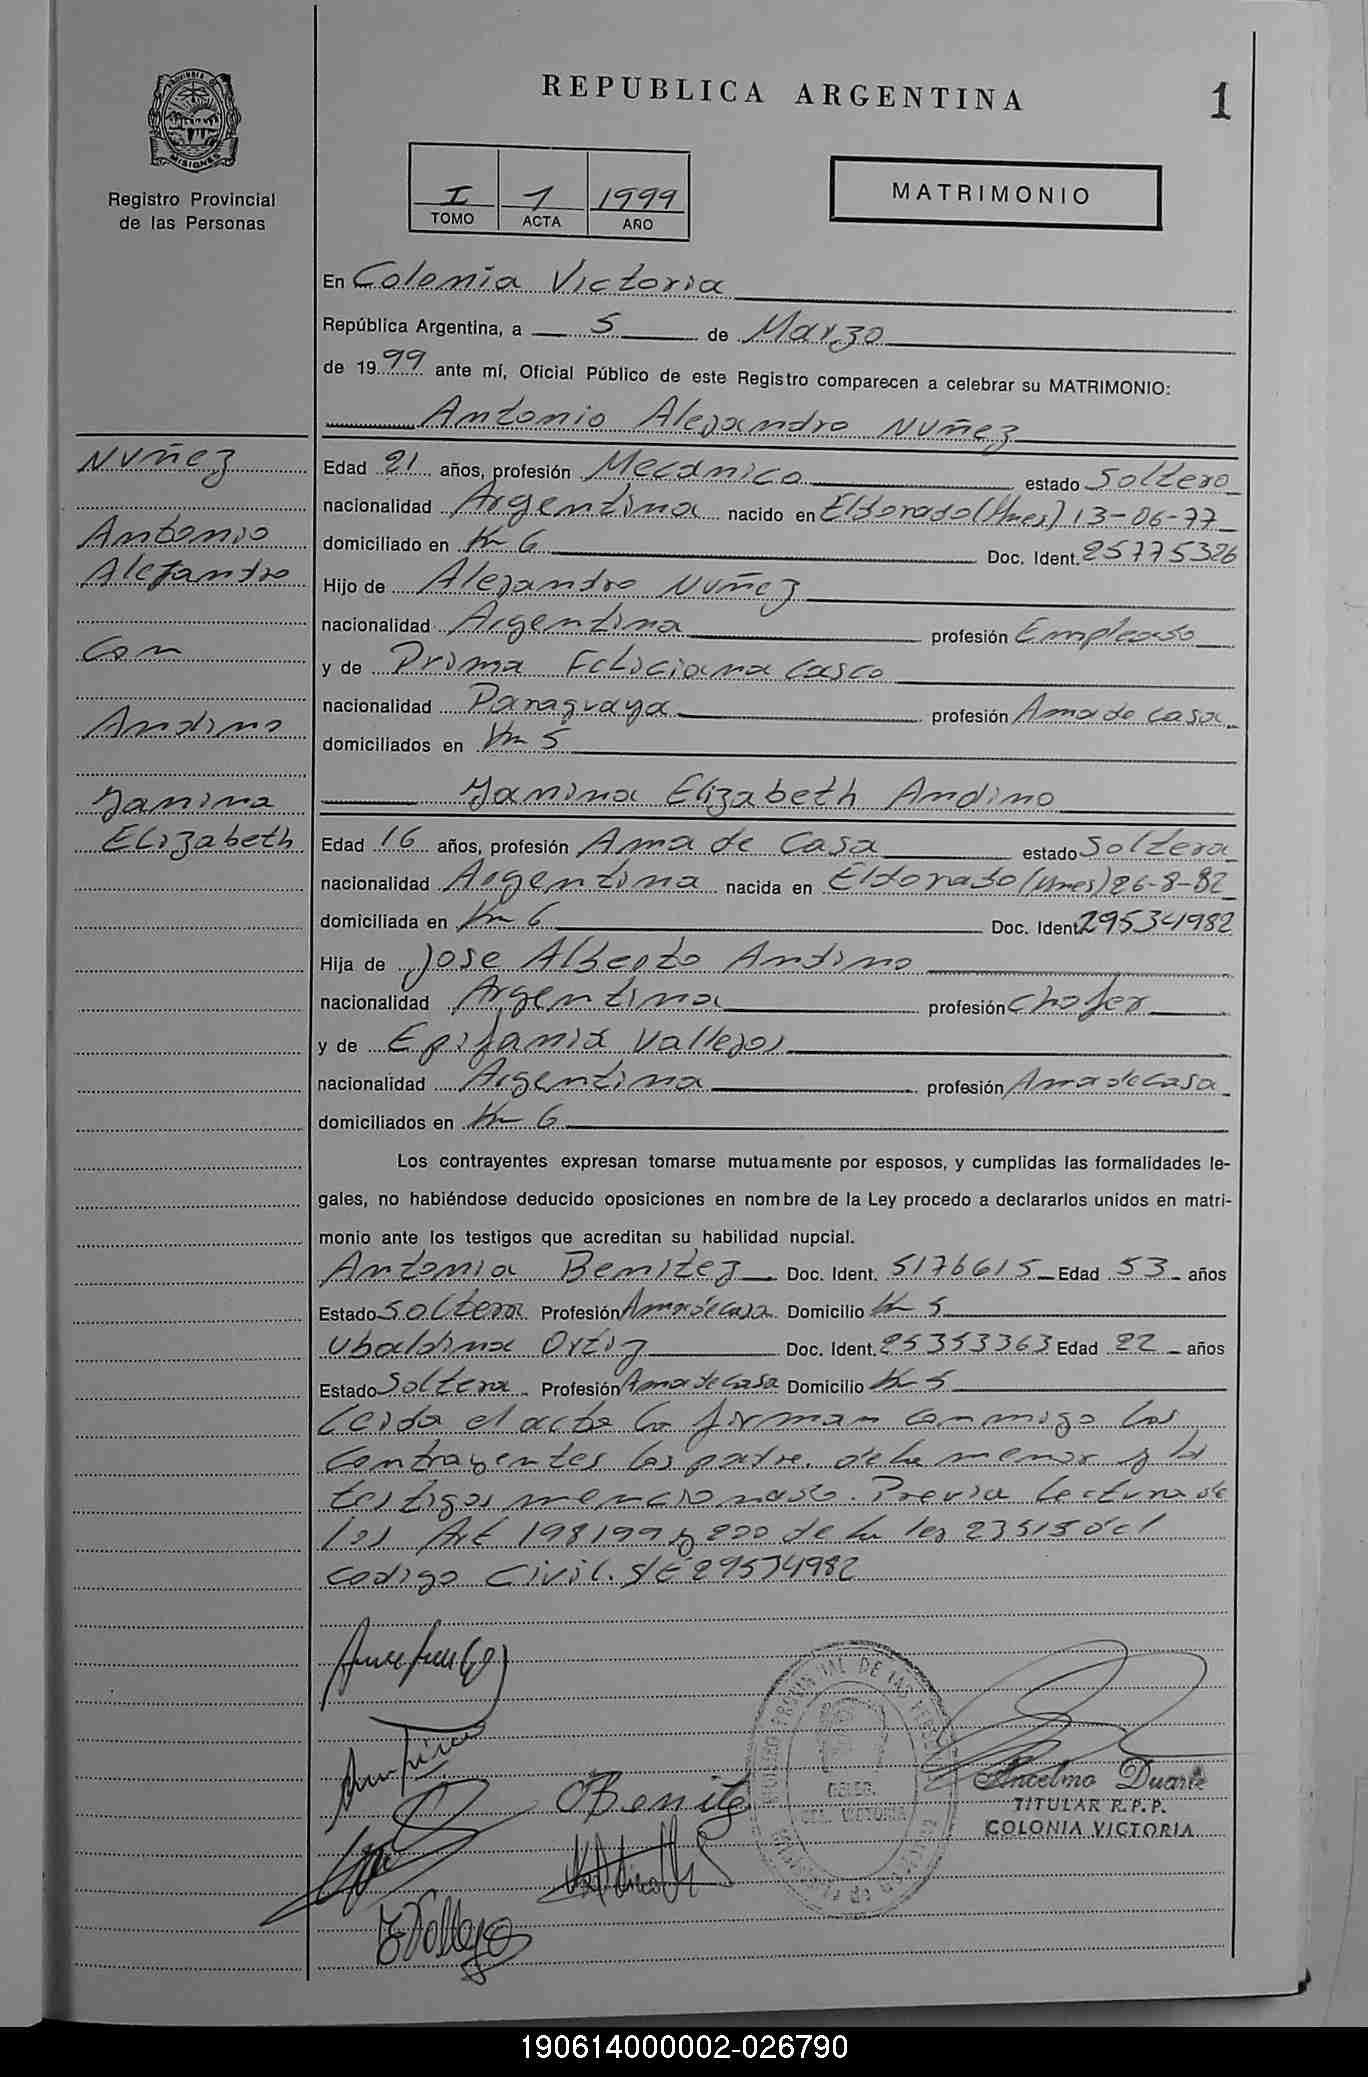 REPUBLICA ARGENTINA
1
PROVINCIA
MISIONES
Registro Provincial
de las Personas
I 1 1999
TOMO ACTA AÑO
MATRIMONIO
En Colonia Victoria
República Argentina, a 5 de Marzo
de 1999 ante mí, Oficial Público de este Registro comparecen a celebrar su MATRIMONIO:
Antonio Alejandro Nuñez
Nuñez
Antonio
Alejandro
Con
Andino
Yanina
Elizabeth
Edad 21 años, profesión Mecánico estado Soltero
nacionalidad Argentina nacido en Eldorado (Mnes) 13-06-77
domiciliado en Km 6 Doc. Ident. 25775326
Hijo de Alejandro Nuñez
nacionalidad Argentina profesión Empleado
y de Prima Feliciana Casco
nacionalidad Paraguaya profesión Ama de casa
domiciliados en Km 5
Yanina Elizabeth Andino
Edad 16 años, profesión Ama de Casa estado Soltera
nacionalidad Argentina nacida en Eldorado (Mnes) 26-8-82
domiciliada en Km 6 Doc. Ident. 29534982
Hija de Jose Alberto Andino
nacionalidad Argentina profesión Chofer
y de Epifania Vallejos
nacionalidad Argentina profesión Ama de Casa
domiciliados en Km 6
Los contrayentes expresan tomarse mutuamente por esposos, y cumplidas las formalidades le-
gales, no habiéndose deducido oposiciones en nombre de la Ley procedo a declararlos unidos en matri-
monio ante los testigos que acreditan su habilidad nupcial.
Antonia Benitez Doc. Ident. 5176615 Edad 53 años
Estado Soltera Profesión Ama de casa Domicilio Km 5
Ubaldina Ortiz Doc. Ident. 25353363 Edad 22 años
Estado Soltera Profesión Ama de Casa Domicilio Km 5
Leida el acta la firman conmigo los
contrayentes los padre de la menor y la
testigos mencionado. Previa lectura de
los Art 198 199 y 200 de la ley 23515 del
Codigo Civil. S/E 29534982
Benitez
EVallejo
DELEG.
COL. VICTORIA
Ancelmo Duarte
TITULAR R.P.P.
COLONIA VICTORIA
190614000002-026790